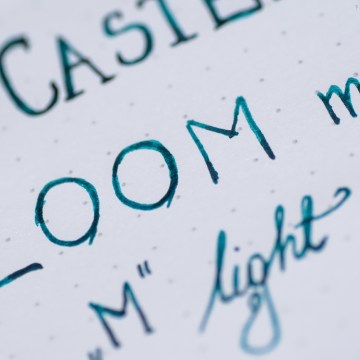 CASTE
LOOM m
„M" light